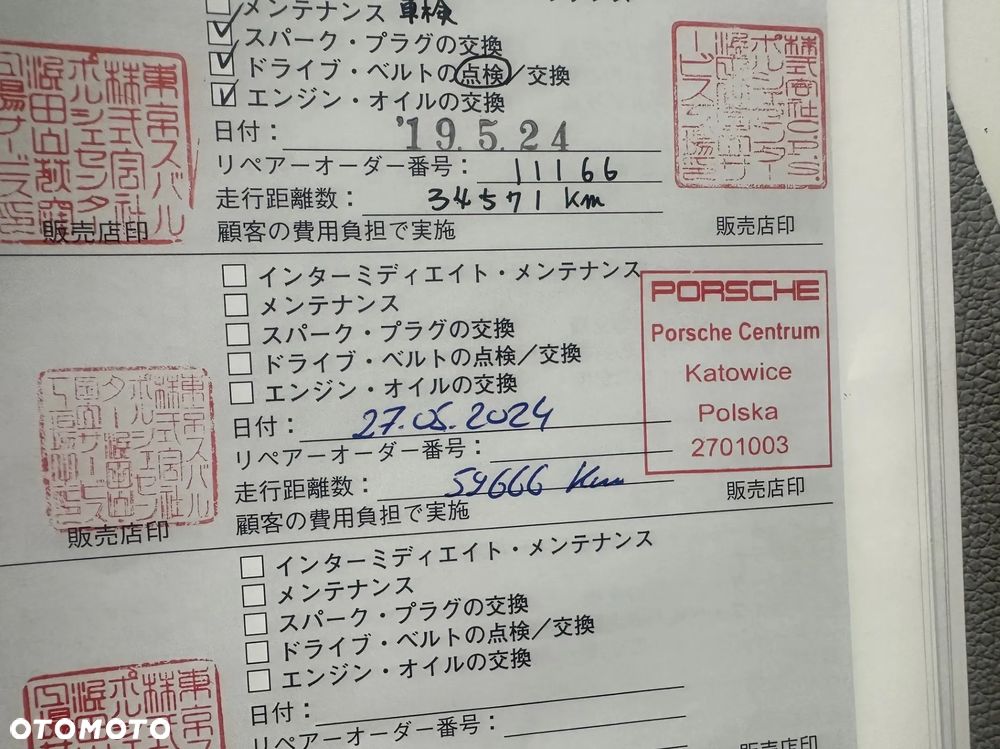 メンテナンス 車検
スパーク・プラグの交換
ドライブ・ベルトの点検／交換
エンジン・オイルの交換
日付：'19.5.24
リペアーオーダー番号：11166
走行距離数：34571 Km
顧客の費用負担で実施
販売店印
販売店印
東京スバル
株式会社
ポルシェセンター
株式会社C.P.S.
インターミディエイト・メンテナンス
メンテナンス
スパーク・プラグの交換
ドライブ・ベルトの点検／交換
エンジン・オイルの交換
日付：27.05.2024
リペアーオーダー番号：
走行距離数：59666 Km
顧客の費用負担で実施
PORSCHE
Porsche Centrum
Katowice
Polska
2701003
販売店印
東京スバル
株式会社
販売店印
インターミディエイト・メンテナンス
メンテナンス
スパーク・プラグの交換
ドライブ・ベルトの点検／交換
エンジン・オイルの交換
日付：
リペアーオーダー番号：
販売店印
OTOMOTO